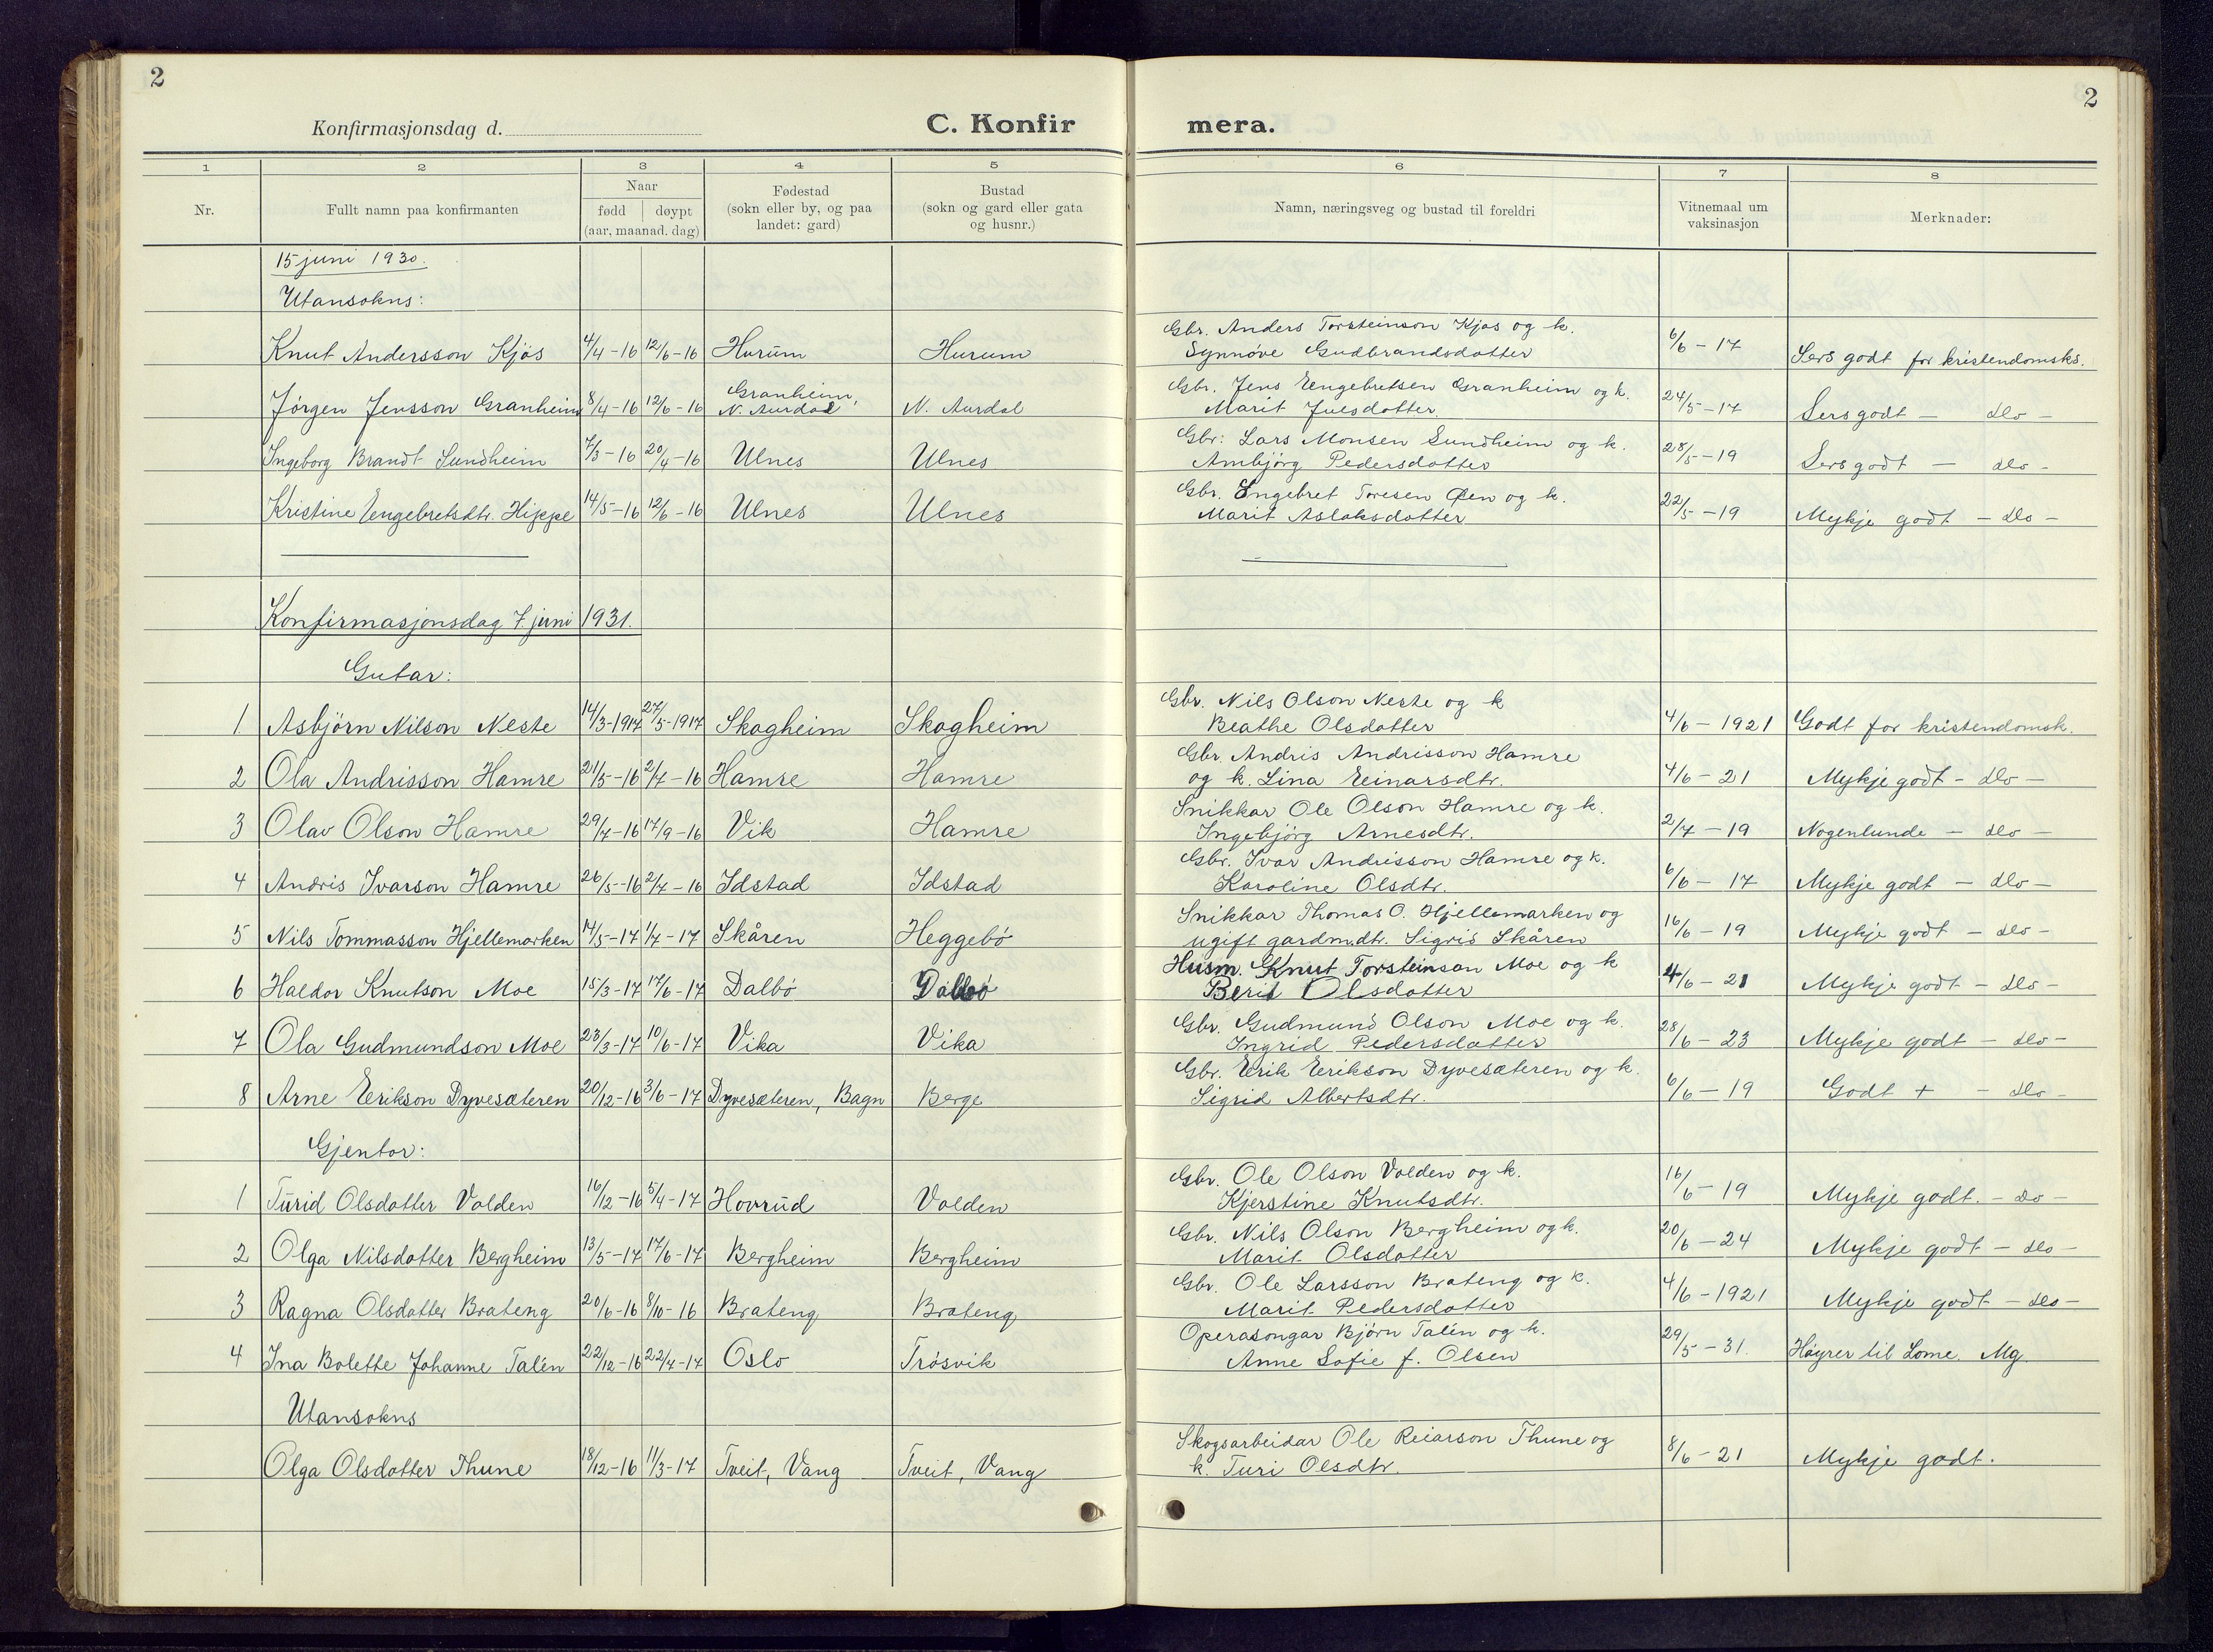 2
Konfirmasjonsdag d.
C. Konfirmera.
2
1 2 3 4 5 6 7 8
Nr. Fullt namn paa konfirmanten Naar født døypt (aar, maanad. dag) Fødestad (sokn eller by, og paa landet: gard) Bustad (sokn og gard eller gata og husnr.) Namn, næringsveg og bustad til foreldri Vitnemaal um vaksinasjon Merknader:
15 juni 1930.
Utansokns:
Knut Andersson Kjøs 4/4-16 12/6-16 Hurum Hurum Gbr. Anders Torsteinson Kjøs og k. Synnøve Gudbrandsdotter 6/6-17 Sers godt for kristendomsks.
Jørgen Jensson Granheim 8/4-16 12/6-16 Granheim, N. Aurdal N. Aurdal Gbr. Jens Engebretsen Granheim og k. Marit Julsdotter 24/5-17 Sers godt - do -
Ingeborg Brandt Sundheim 7/3-16 20/4-16 Ulnes Ulnes Gbr: Lars Monsen Sundheim og k. Ambjørg Pedersdotter 28/5-19 Sers godt - do -
Kristine Engebretsdtr. Hippe 14/5-16 12/6-16 Ulnes Ulnes Gbr. Engebret Toresen Øen og k. Marit Aslaksdotter 22/5-19 Mykje godt - do -
Konfirmasjonsdag 7. juni 1931.
Gutar:
1 Asbjørn Nilson Neste 14/3-1917 27/5-1917 Skogheim Skogheim Gbr. Nils Olson Neste og k Beathe Olsdotter 4/6-1921 Godt for kristendomsk.
2 Ola Andrisson Hamre 21/5-16 2/7-16 Hamre Hamre Gbr. Andris Andrisson Hamre og k. Lina Einarsdtr. 4/6-21 Mykje godt - do -
3 Olav Olson Hamre 29/7-16 17/9-16 Vik Hamre Snikkar Ole Olson Hamre og k. Ingebjørg Arnesdtr. 2/7-19 Nogenlunde - do -
4 Andris Ivarson Hamre 26/5-16 2/7-16 Idstad Idstad Gbr. Ivar Andrisson Hamre og k. Karoline Olsdtr. 6/6-17 Mykje godt - do -
5 Nils Tommasson Hjellemarken 14/5-17 1/7-17 Skåren Heggebø Snikkar Thomas O. Hjellemarken og ugift gardm.dtr. Sigrid Skåren 16/6-19 Mykje godt - do -
6 Haldor Knutson Moe 15/3-17 17/6-17 Dalbø Dalbø Husm. Knut Torsteinson Moe og k Berit Olsdotter 4/6-21 Mykje godt - do -
7 Ola Gudmundson Moe 23/3-17 10/6-17 Vika Vika Gbr. Gudmund Olson Moe og k. Ingrid Pedersdotter 28/6-23 Mykje godt - do -
8 Arne Erikson Dyvesæteren 20/12-16 3/6-17 Dyvesæteren, Bagn Berge Gbr. Erik Erikson Dyvesæteren og k. Sigrid Albertsdtr. 6/6-19 Godt + - do -
Gjentor:
1 Turid Olsdotter Volden 16/12-16 5/4-17 Hovrud Volden Gbr. Ole Olson Volden og k. Kjerstine Knutsdtr. 16/6-19 Mykje godt. - do -
2 Olga Nilsdotter Bergheim 13/5-17 17/6-17 Bergheim Bergheim Gbr. Nils Olson Bergheim og k. Marit Olsdotter 20/6-24 Mykje godt - do -
3 Ragna Olsdotter Brateng 20/6-16 8/10-16 Brateng Brateng Gbr. Ole Larsson Brateng og k. Marit Pedersdotter 4/6-1921 Mykje godt - do -
4 Ina Bolette Johanne Talén 22/12-16 22/4-17 Oslo Trøsvik Operasongar Bjørn Talén og k. Anne Sofie f. Olsen 29/5-31. Høyrer til Lome. Mg.
Utansokns
Olga Olsdotter Thune 18/12-16 11/3-17 Tveit, Vang Tveit, Vang Skogsarbeidar Ole Reiarson Thune og k. Turi Olsdtr. 8/6-21 Mykje godt.